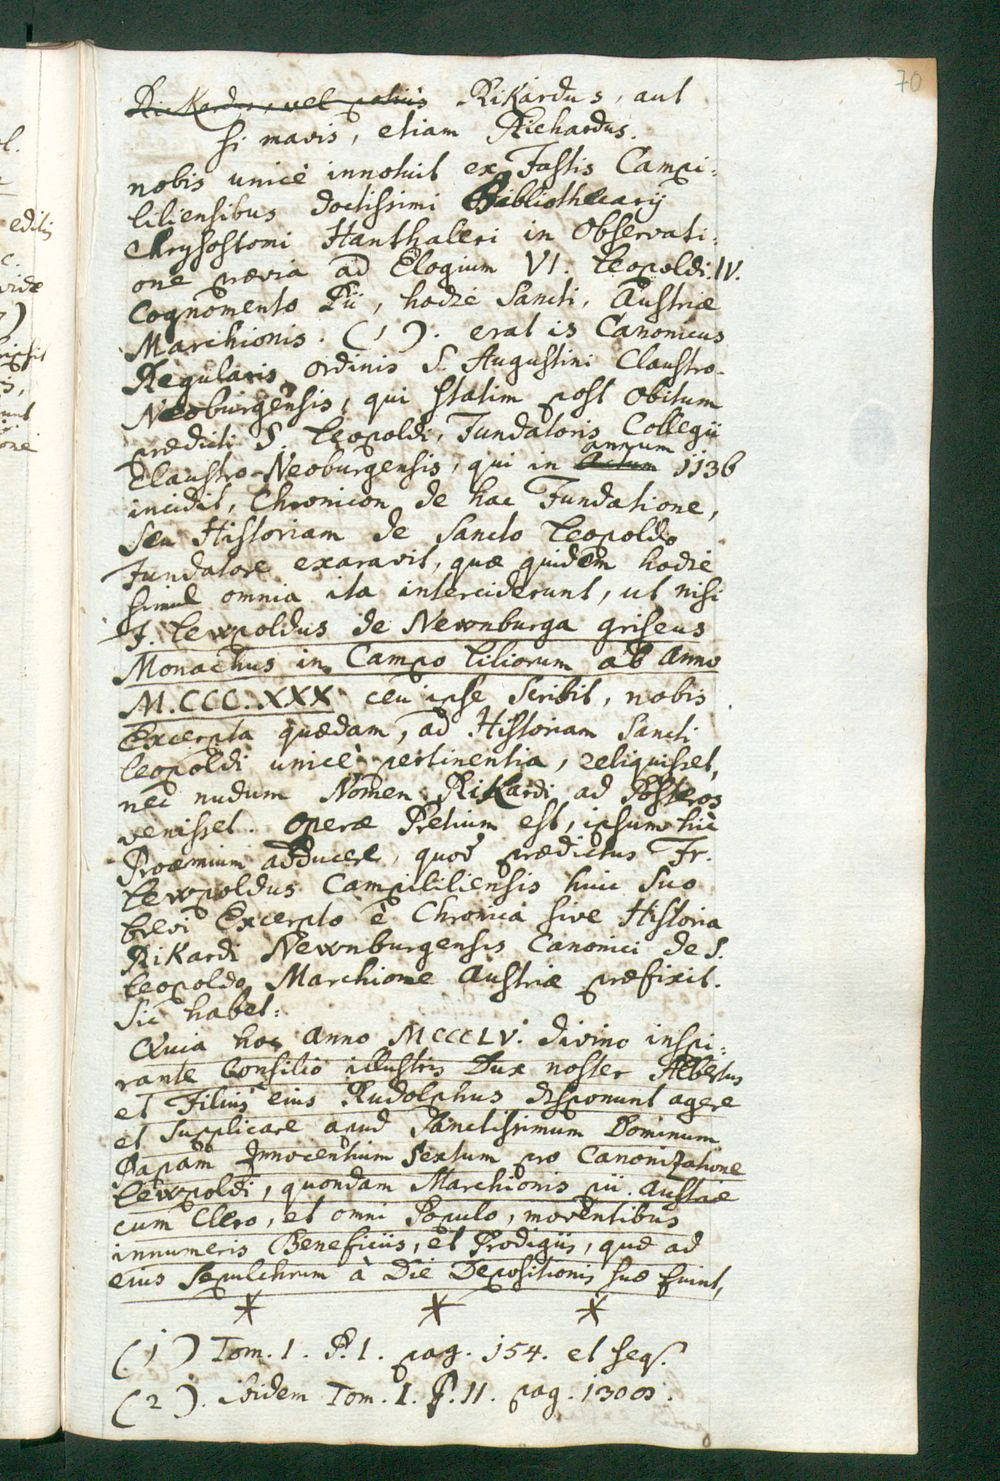 70
Rickardus, vel potiùs Rikardus, aut
si mavis, etiam Richardus.
nobis unicè innotuit ex Fastis Campi:
liliensibus doctissimi Bibliothecarij
Chrysostomi Hanthaleri in Observati:
one prævia ad Elogium VI. Leopoldi IV.
Cognomento Pii, hodie Sancti, Austriæ
Marchionis. (1). erat is Canonicus
Regularis ordinis S. Augustini Claustro-
Neoburgensis, qui statim post obitum
prædicti S. Leopoldi, Fundatoris Collegii
annum
Claustro-Neoburgensis, qui in 1136
incidit, Chronicon de hac Fundatione,
seu Historiam de Sancto Leopoldo
Fundatore exaravit, quæ quidem hodie
simul omnia ita interciderunt, ut nisi
F. Lewpoldus de Newnburga griseus
Monachus in Campo Liliorum ab Anno
M.CCC.XXX ceu ipse scribit, nobis
Excerpta quædam, ad Historiam Sancti
Leopoldi unicè pertinentia, reliquisset,
nec nudum Nomen Rikardi ad Posteros
venisset. Operæ Pretium est, ipsum hic
Proœmium adducere, quod prædictus Fr.
Lewpoldus Campililiensis huic suo
brevi Excerpto è Chronica sive Historia
Rikardi Newnburgensis Canonici de S.
Leopoldo Marchione Austriæ præfixit.
Sic habet:
Quia hoc Anno MCCCLV. divino inspi:
rante Consilio illustris Dux noster Albertus
et Filius eius Rudolphus disponunt agere
et supplicare apud Sanctissimum Dominum
Papam Innocentium Sextum pro Canonizatione
Lewpoldi, quondam Marchionis pii Austriæ
cum Clero, et omni Populo, moventibus
innumeris Beneficiis, et Prodigiis, quæ ad
eius Sepulchrum à Die Depositionis suæ fiunt,
* * *
(1) Tom. I. P. I. pag. 154. et seq.
(2). ibidem Tom. I. P. II. pag. 1300.